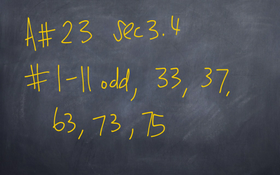 A#23 sec 3.4
#1-11 odd, 33, 37,
63, 73, 75